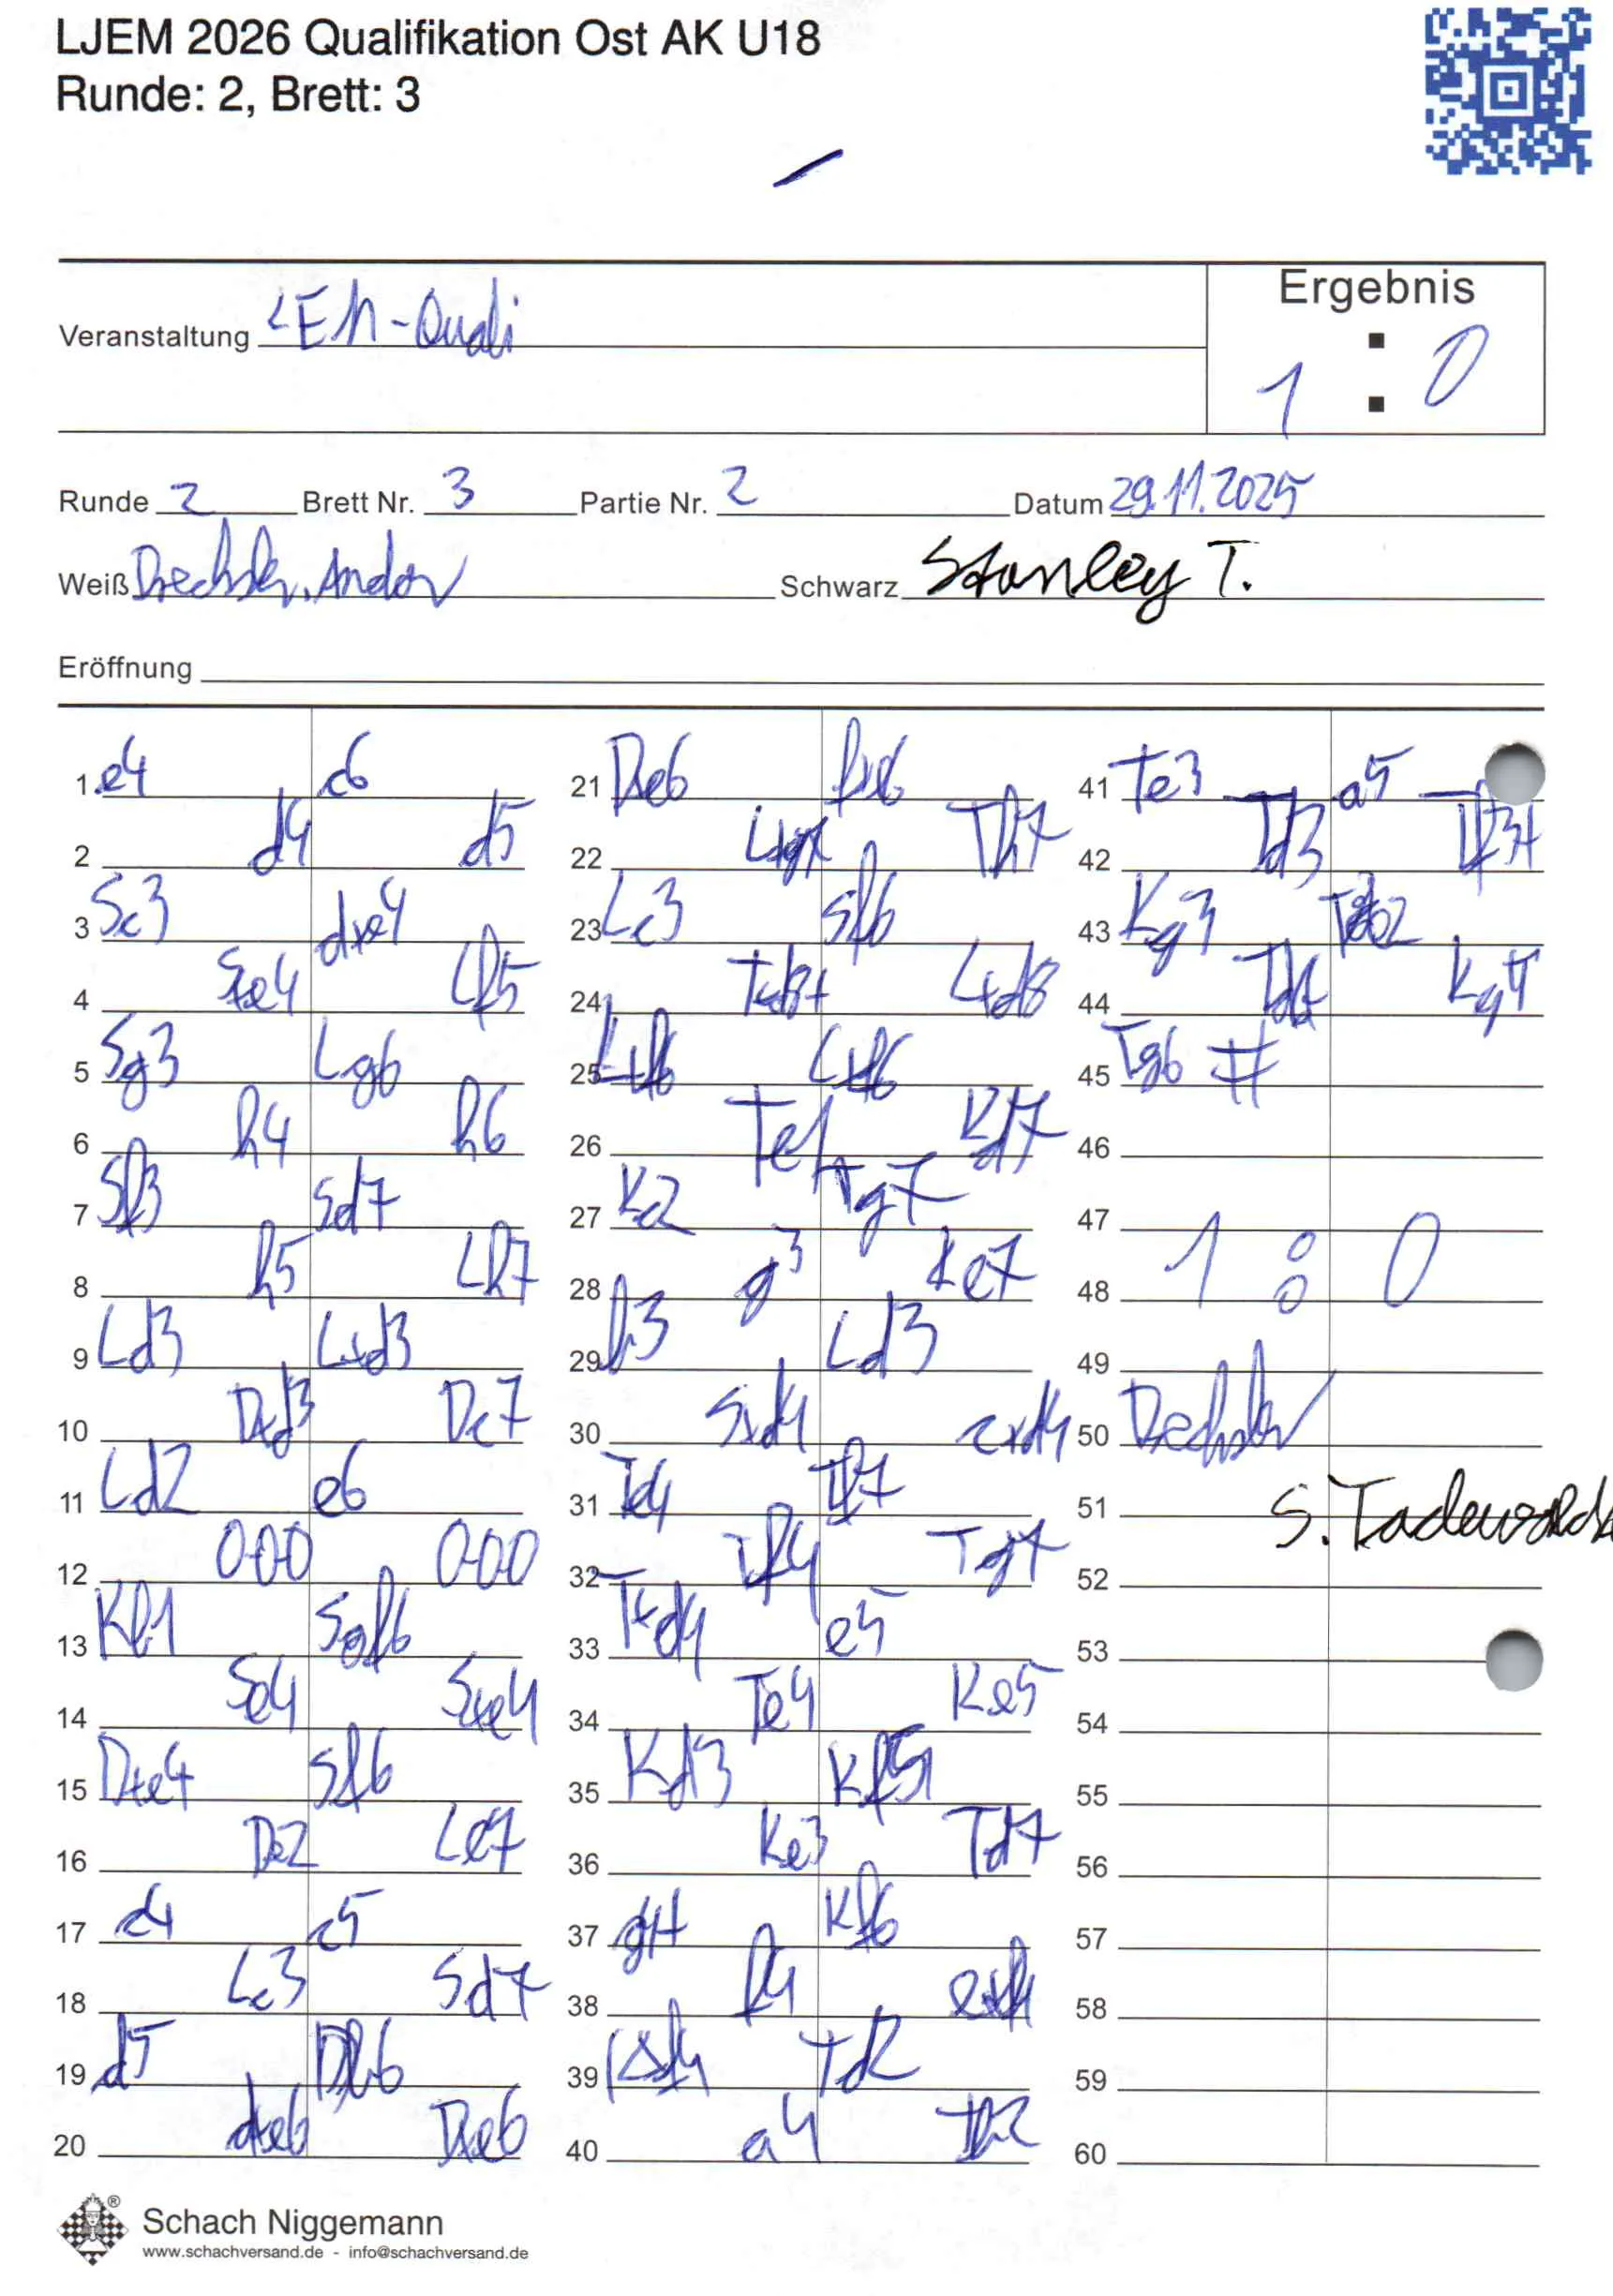 LJEM 2026 Qualifikation Ost AK U18
Runde: 2, Brett: 3
Ergebnis
Veranstaltung LEM-Quali
1 : 0
Runde 2 Brett Nr. 3 Partie Nr. 2 Datum 29.11.2025
Weiß Drechsler, Andor Schwarz Stanley T.
Eröffnung
1. e4 c6
2 d4 d5
3 Sc3 dxe4
4 Sxe4 Lf5
5 Sg3 Lg6
6 h4 h6
7 Sf3 Sd7
8 h5 Lh7
9 Ld3 Lxd3
10 Dxd3 Dc7
11 Ld2 e6
12 0-0-0 0-0-0
13 Kb1 Sgf6
14 Se4 Sxe4
15 Dxe4 Sf6
16 De2 Le7
17 c4 c5
18 Lc3 Sd7
19 d5 Db6
20 dxe6 Dxe6
21 Dxe6 fxe6
22 Lxg7 Th7
23 Lc3 Sf6
24 Txd8+ Lxd8
25 Lxf6 Lxf6
26 Te1 Kd7
27 Kc2 Tg7
28 g3 Ke7
29 b3 Ld3
30 Sxd4 cxd4
31 Td4 Tf7
32 Tf4 Tg7
33 Txd4 e5
34 Te4 Ke5
35 Kd3 Kf5
36 Ke3 Td7
37 g4+ Kf6
38 f4 exf4
39 Kxf4 Td2
40 a4 Th2
41 Te3 a5
42 Td3 Tf3+
43 Kg3 Tb2
44 Kg4
45 Tg6 #
46
47
48 1 : 0
49
50 Drechsler
51 S.
52
53
54
55
56
57
58
59
60
Schach Niggemann
www.schachversand.de - info@schachversand.de